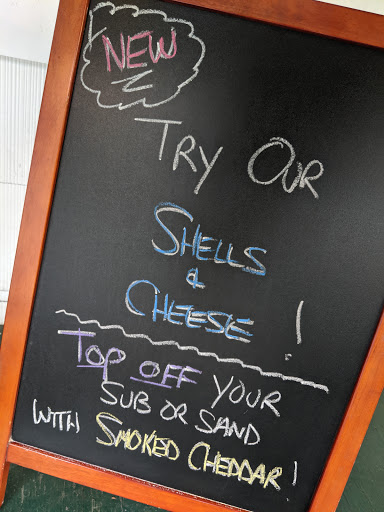 NEW
TRY OUR
SHELLS
&
CHEESE!
TOP OFF YOUR
SUB OR SAND
WITH SMOKED CHEDDAR!